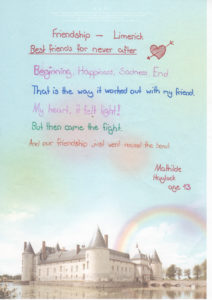 Friendship - Limerick
Best friends for never after
Beginning, Happiness, Sadness, End
That is the way it worked out with my friend.
My heart, it felt light!
But then came the fight.
And our friendship just went round the bend.
Mathilde
Haylock
age 13